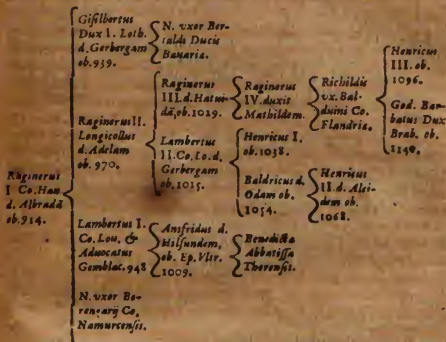 Raginerus
I Co. Han
d. Albradā
ob. 914.
Gisilbertus
Dux I. Loth.
d. Gerbergam
ob. 939.
N. vxor Ber-
taldi Ducis
Bauariæ.
Raginerus II.
Longicollus
d. Adelam
ob. 970.
Raginerus
III. d. Hatui-
dā, ob. 1029.
Raginerus
IV. duxit
Mathildem.
Richildis
vx. Bal-
duini Co.
Flandria.
Lambertus
II. Co. Lo. d.
Gerbergam
ob. 1015.
Henricus I.
ob. 1038.
Baldricus d.
Odam ob.
1054.
Henricus
II. d. Alei-
dem ob.
1068.
Henricus
III. ob.
1096.
God. Bar-
batus Dux
Brab. ob.
1140.
Lambertus I.
Co. Lou. &
Aduocatus
Gemblac. 948
Ansfridus d.
Hilsundem,
ob. Ep. Vltr.
1009.
Benedicta
Abbatissa
Thorensis.
N. vxor Be-
rengarij Co.
Namurcensis.